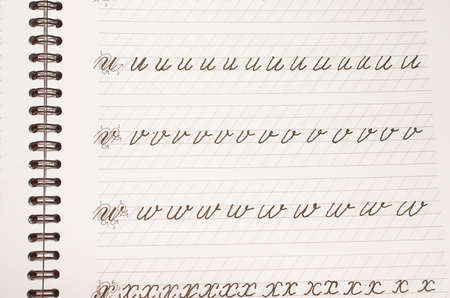 u u u u u u u u u u u u u
v v v v v v v v v v v v v v
w w w w w w w w w w
x x x x x x x x x x x x x x x x x x